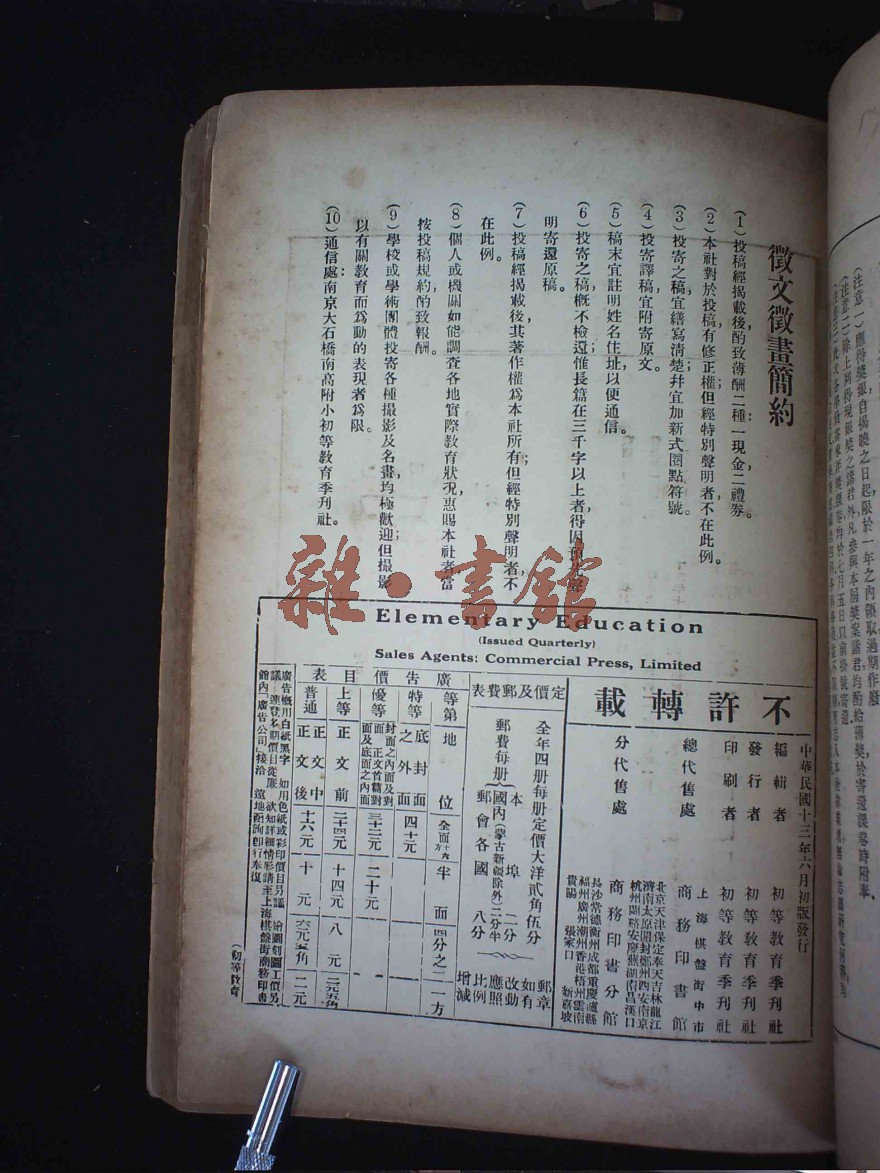 徵文徵畫簡約
(1)投稿經揭載後,酌致薄酬二種一現金二禮券。
(2)本社對於投稿,有修正權但經特別聲明者,不在此例。
(3)投寄之稿,宜繕寫清楚幷宜加新式圈點符號。
(4)投寄譯稿,宜附寄原文。
(5)稿末宜註明姓名住址,以便通信。
(6)投寄之稿,概不檢還惟長篇在三千字以上者,得因預先聲
明寄還原稿。
(7)投稿經揭載後,其著作權爲本社所有;但經特別聲明者不
在此例。
(8)個人或機關如能調查各地實際教育狀況,惠賜本社者,當
按投稿規約,酌致報酬。
(9)學校或學術團體投寄各種撮影及名畫,均極歡迎但撮影
以有關教育而爲動的表現者爲限。
(10)通信處:南京大石橋南高附小初等教育季刊社。
雜·書館
Elementary Education
(Issued Quarterly)
Sales Agents: Commercial Press, Limited
中華民國十三年六月初版發行
不許轉載
編輯者 初等教育季刊社
發行者 初等教育季刊社
印刷者 初等教育季刊社
總代售處 上海棋盤街中市 商務印書館
分代售處 商務印書分館
北京天津保定奉天吉林龍江
濟南太原開封鄭州西安南京
杭州蘭谿安慶蕪湖南昌漢口
長沙常德衡州成都重慶瀘縣
福州廣州潮州香港梧州雲南
貴陽 張家口 新嘉坡
定價及郵費表
全年四册每册定價大洋貳角伍分
郵費每册
本埠 二分
國內(蒙古新疆除外)二分半
郵會各國 八分
郵章如有改動應照比例增減
廣告價目表
等第 地位 全面 半面 四分之一方
特等 底封面之外面 四十元
優等 封面之內面及對面正文首篇對面及底面之內面 三十二元 二十元
上等 正文前 二十四元 十四元 八元
普通 正文中 正文後 十六元 十元 六元五角
廣告概用白紙黑字 如用色紙或彩印價目另議 繪圖刻圖工價另
議 連登多期價目從廉 欲知詳細情形請至上海棋盤街商務印書
館內「廣告公司」接洽 遠地函詢即行奉復
(初等教育)
(注意一)應得獎振,自揭曉之日起,限於一年之內領取過期作廢